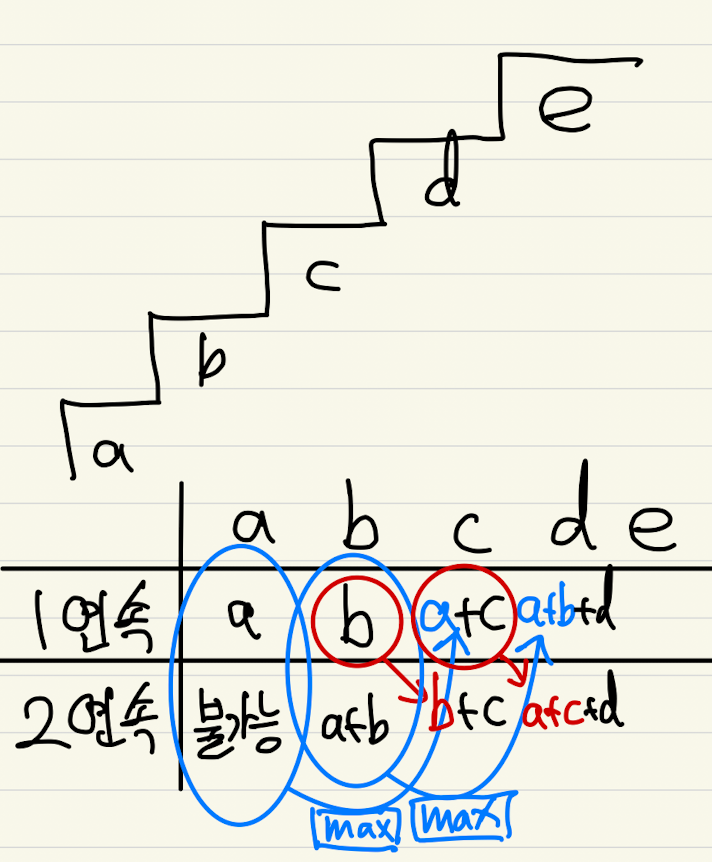 e
d
c
b
a
a b c d e
1연속 a b a+c a+b+d
2연속 불가능 a+b b+c a+c+d
max max